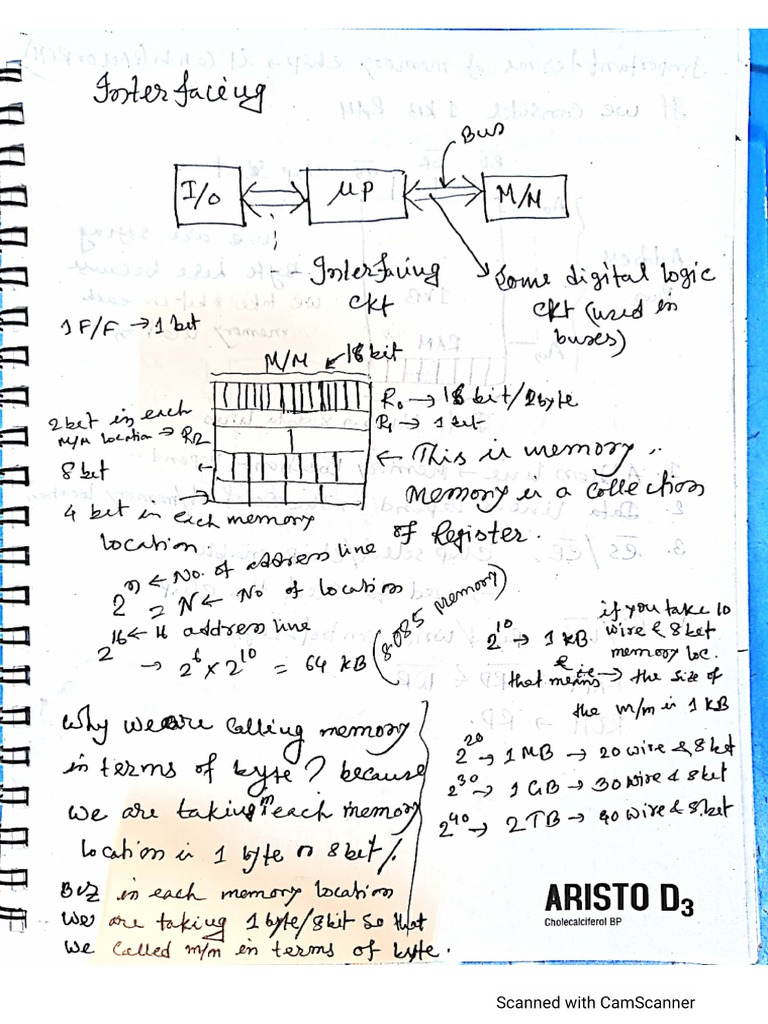 Interfacing
Bus
I/O
μP
M/M
Interfacing
ckt
Some digital logic
ckt (used in
buses)
1 F/F → 1 bit
M/M
18 bit
R0 → 18 bit/2byte
R1 → 1 bit
2 bit in each
M/M location → R2
8 bit
4 bit in each memory
location
← This is memory
memory is a collection
of Register.
2^n ← No. of address line
2 = N ← No of location
2^16 ← 16 address line
→ 2^6 × 2^10 = 64 KB (8085 memory)
2^10 → 1 KB
if you take 10
wire & 8 bit
memory loc.
that means → the size of
the m/m is 1 KB
2^20 → 1 MB → 20 wire & 8 bit
2^30 → 1 GB → 30 wire & 8 bit
2^40 → 2 TB → 40 wire & 8 bit
Why we are calling memory
in terms of byte? because
we are taking in each memory
location is 1 byte or 8 bit
Bcz in each memory location
We are taking 1 byte/8bit so that
we called m/m in terms of byte.
ARISTO D3
Cholecalciferol BP
Scanned with CamScanner